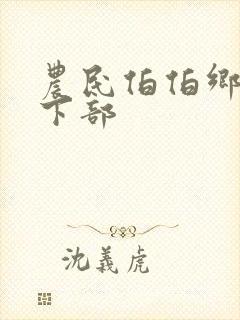 農民伯伯鄉
下部
沈義虎